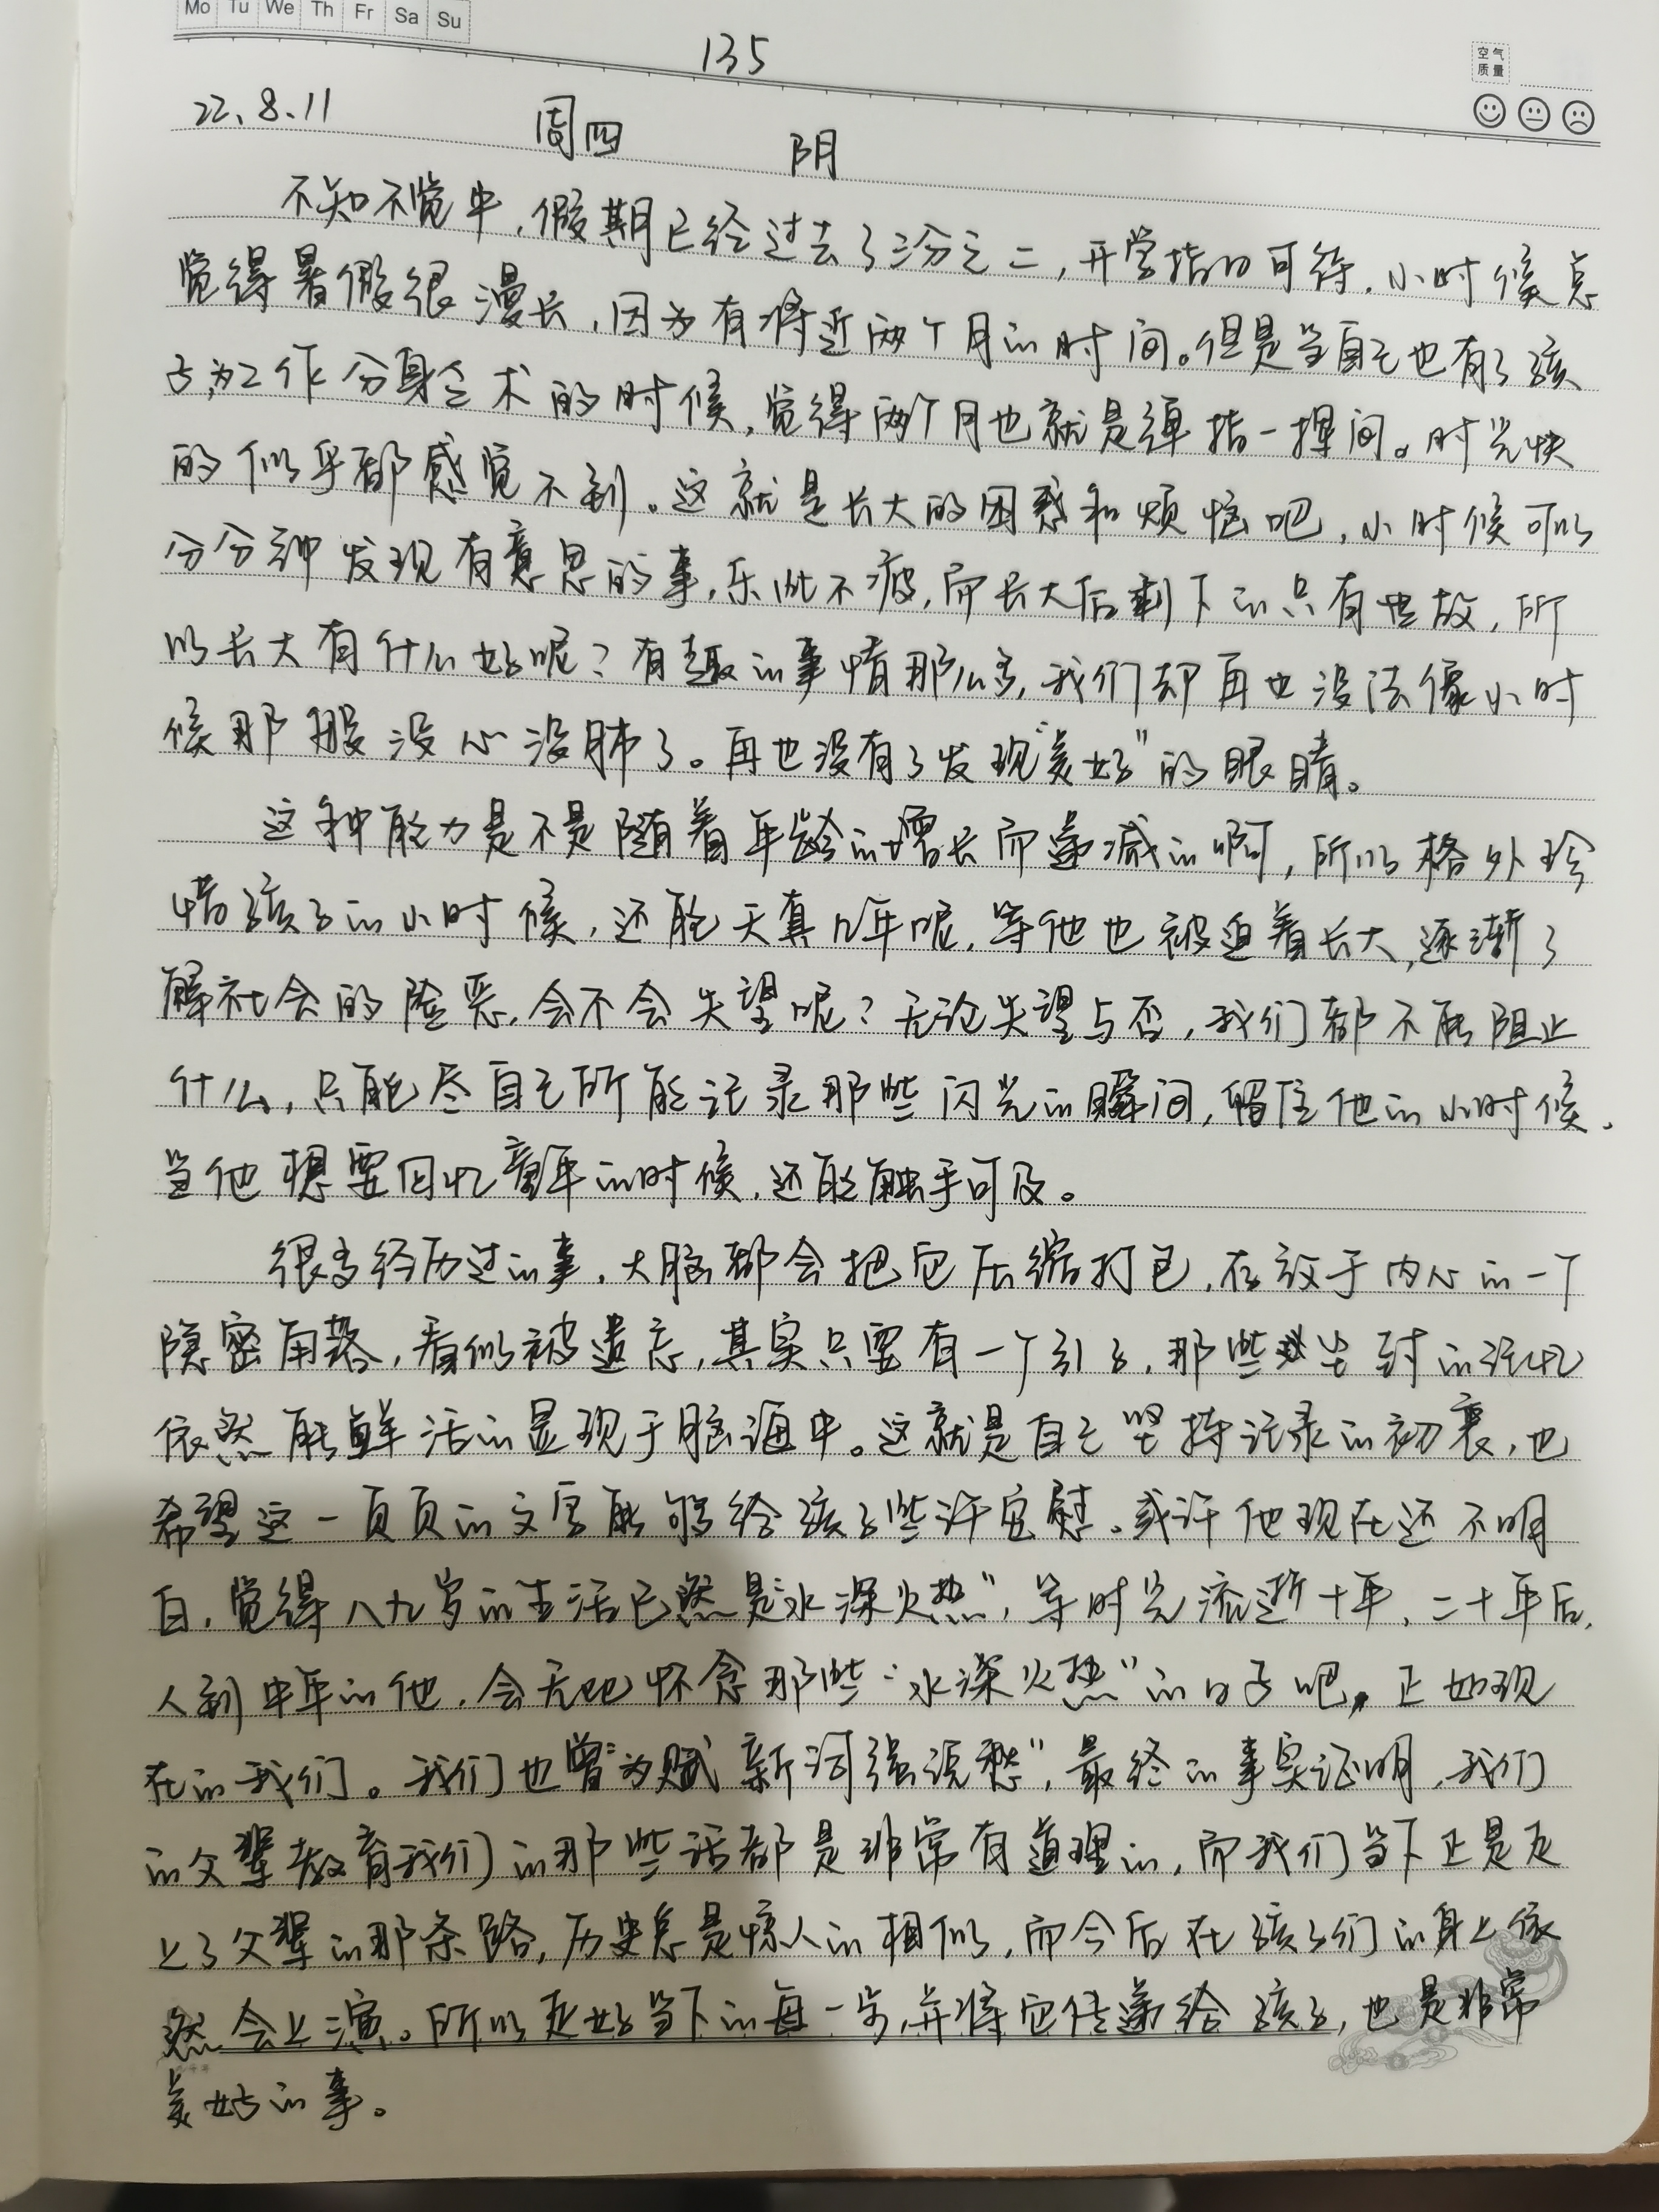 Mo Tu We Th Fr Sa Su
135
空气质量
22.8.11 周四 阴
不知不觉中,假期已经过去了三分之二,开学指日可待,小时候总
觉得暑假很漫长,因为有将近两个月的时间。但是当自己也有了孩
子,为工作分身乏术的时候,觉得两个月也就是弹指一挥间。时光快
的似乎都感觉不到。这就是长大的困惑和烦恼吧,小时候可以
分分钟发现有意思的事,乐此不疲,而长大后剩下的只有世故,所
以长大有什么好呢?有趣的事情那么多,我们却再也没法像小时
候那般没心没肺了。再也没有了发现“美好”的眼睛。
这种能力是不是随着年龄的增长而递减的啊,所以格外珍
惜孩子的小时候,还能天真几年呢,等他也被迫着长大,逐渐了
解社会的险恶,会不会失望呢?无论失望与否,我们都不能阻止
什么,只能尽自己所能记录那些闪光的瞬间,留住他的小时候,
当他想要回忆童年的时候,还能触手可及。
很多经历过的事,大脑都会把它压缩打包,存放于内心的一个
隐密角落,看似被遗忘,其实只要有一个引子,那些尘封的记忆
依然能鲜活的显现于脑海中。这就是自己坚持记录的初衷,也
希望这一页页的文字能够给孩子些许宽慰。或许他现在还不明
白,觉得八九岁的生活已然是“水深火热”,等时光流逝十年,二十年后,
人到中年的他,会无比怀念那些“水深火热”的日子吧,正如现
在的我们。我们也曾“为赋新词强说愁”,最终的事实证明,我们
的父辈教育我们的那些话都是非常有道理的,而我们当下正是走
上了父辈的那条路,历史总是惊人的相似,而今后在孩子们的身上依
然会上演。所以走好当下的每一步,并将它传递给孩子,也是非常
美好的事。